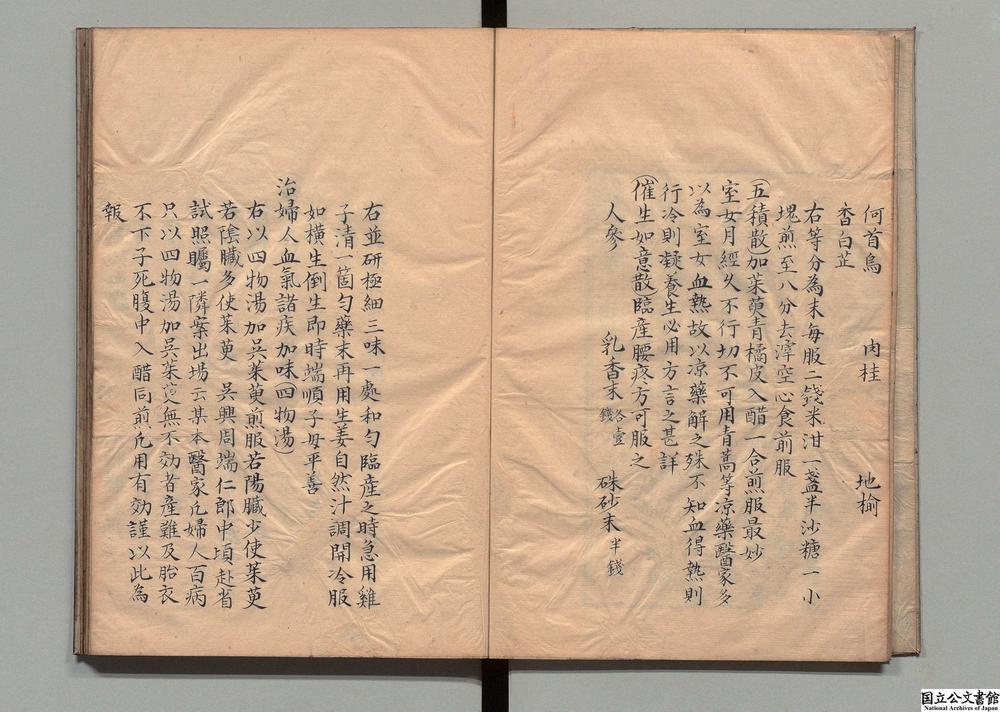 何首烏 肉桂 地榆
香白芷
右等分為末每服二錢米泔一盞半沙糖一小
塊煎至八分去滓空心食前服
五積散加茱萸青橘皮入醋一合煎服最妙
室女月經久不行切不可用青蒿等凉藥醫家多
以為室女血熱故以凉藥解之殊不知血得熱則
行冷則凝養生必用方言之甚詳
催生如意散臨産腰疼方可服之
人參 乳香末各壹錢 硃砂末半錢
右並研極細三味一處和勻臨産之時急用雞
子清一箇勻藥末再用生姜自然汁調開冷服
如横生倒生即時端順子母平善
治婦人血氣諸疾加味四物湯
右以四物湯加吳茱萸煎服若陽臟少使茱萸
若陰臟多使茱萸 吳興周端仁郎中頃赴省
試照矚一隣案出場云某本醫家凢婦人百病
只以四物湯加吳茱萸無不効者産難及胎衣
不下子死腹中入醋同煎凢用有効謹以此為
報
国立公文書館
National Archives of Japan